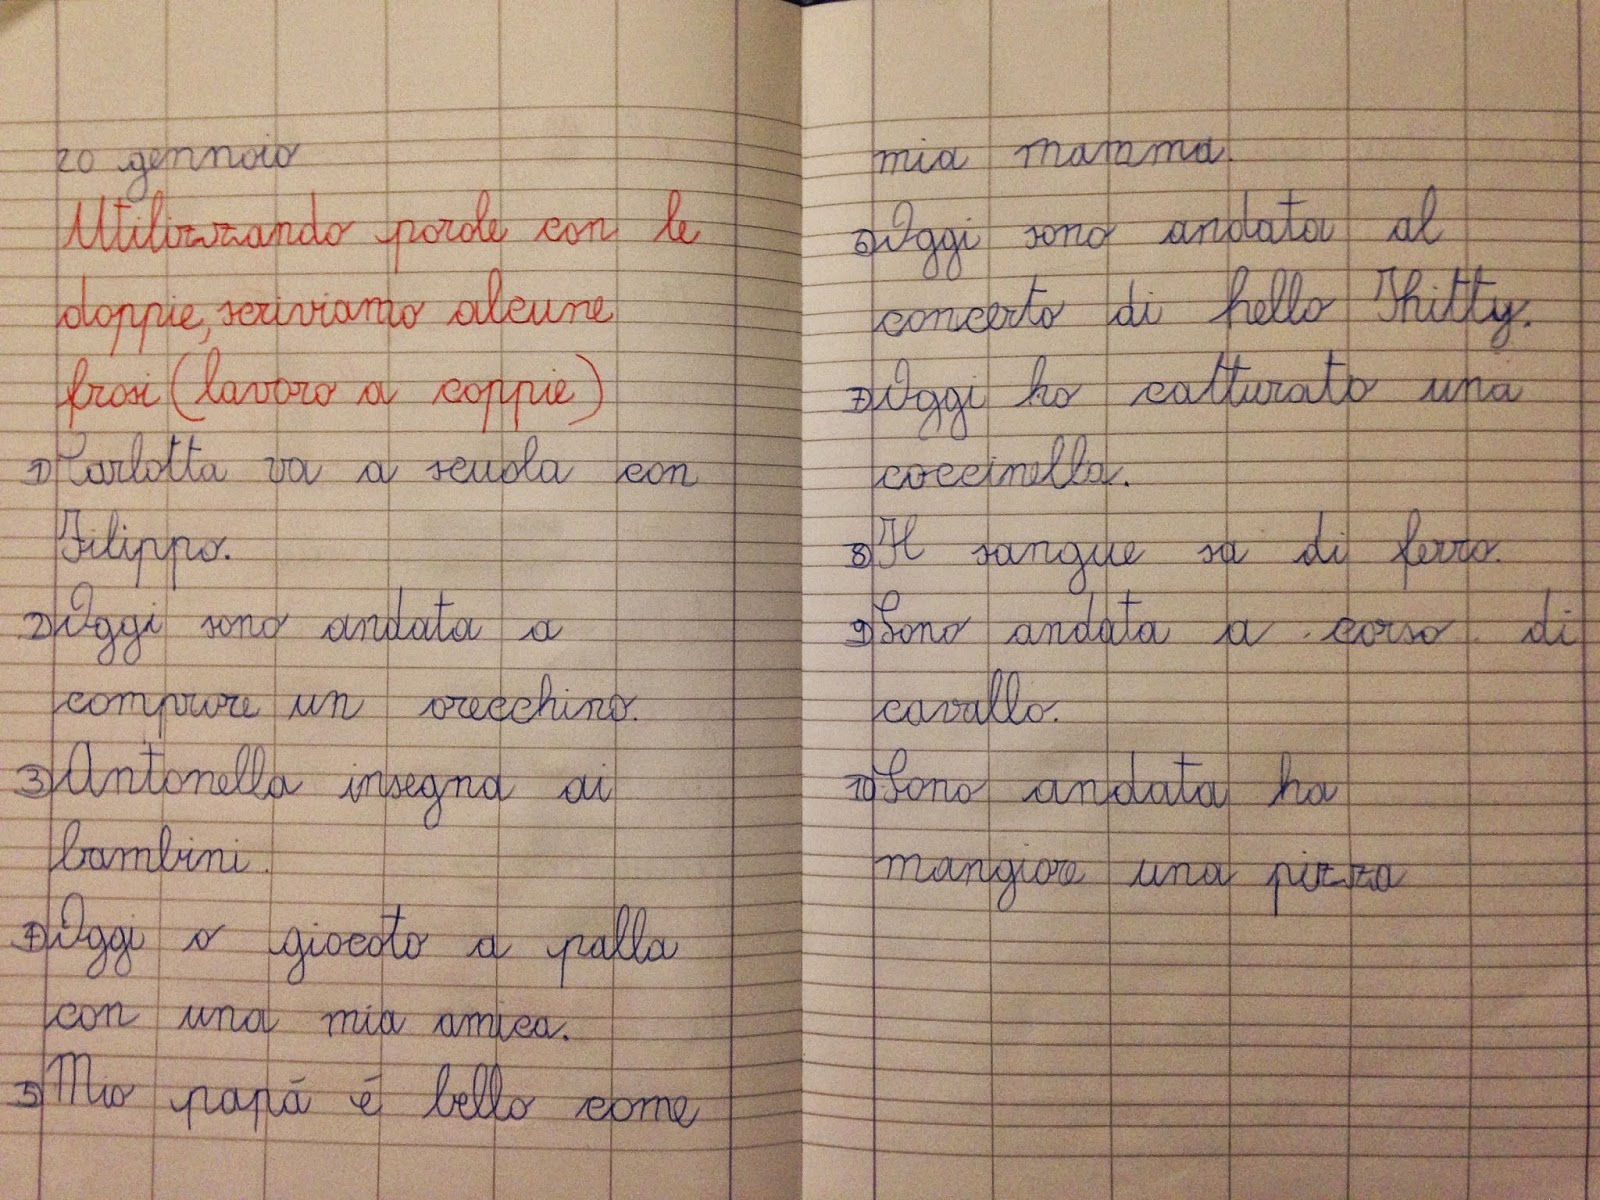 20 gennaio
Utilizzando parole con le
doppie, scriviamo alcune
frasi (lavoro a coppie)
1) Carlotta va a scuola con
Filippo.
2) Oggi sono andata a
comprare un orecchino.
3) Antonella insegna ai
bambini.
4) Oggi o giocato a palla
con una mia amica.
5) Mio papá é bello come
mia mamma.
6) Oggi sono andata al
concerto di hello Khitty.
7) Oggi ho catturato una
coccinella.
8) Il sangue sa di ferro.
9) Sono andata a corso di
cavallo.
10) Sono andata ha
mangiare una pizza